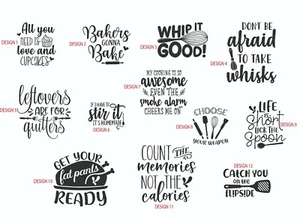 All you
need IS
love
and
CUPCAKES
DESIGN 1
Bakers
GONNA
Bake
DESIGN 2
WHIP IT
GOOD!
DESIGN 3
DON'T BE
afraid
TO TAKE
whisks
DESIGN 4
leftovers
ARE FOR
quitters
IF I HAVE TO
stir it,
IT'S HOMEMADE
DESIGN 6
MY COOKING IS SO
awesome
EVEN THE
smoke alarm
CHEERS ME ON
DESIGN 7
CHOOSE
YOUR WEAPON
DESIGN 8
LIFE
IS
short
LICK THE
spoon
GET YOUR
fat pants
READY
DESIGN 10
COUNT THE
memories
NOT THE
calories
DESIGN 11
DESIGN 12
CATCH YOU
ON THE
FLIPSIDE